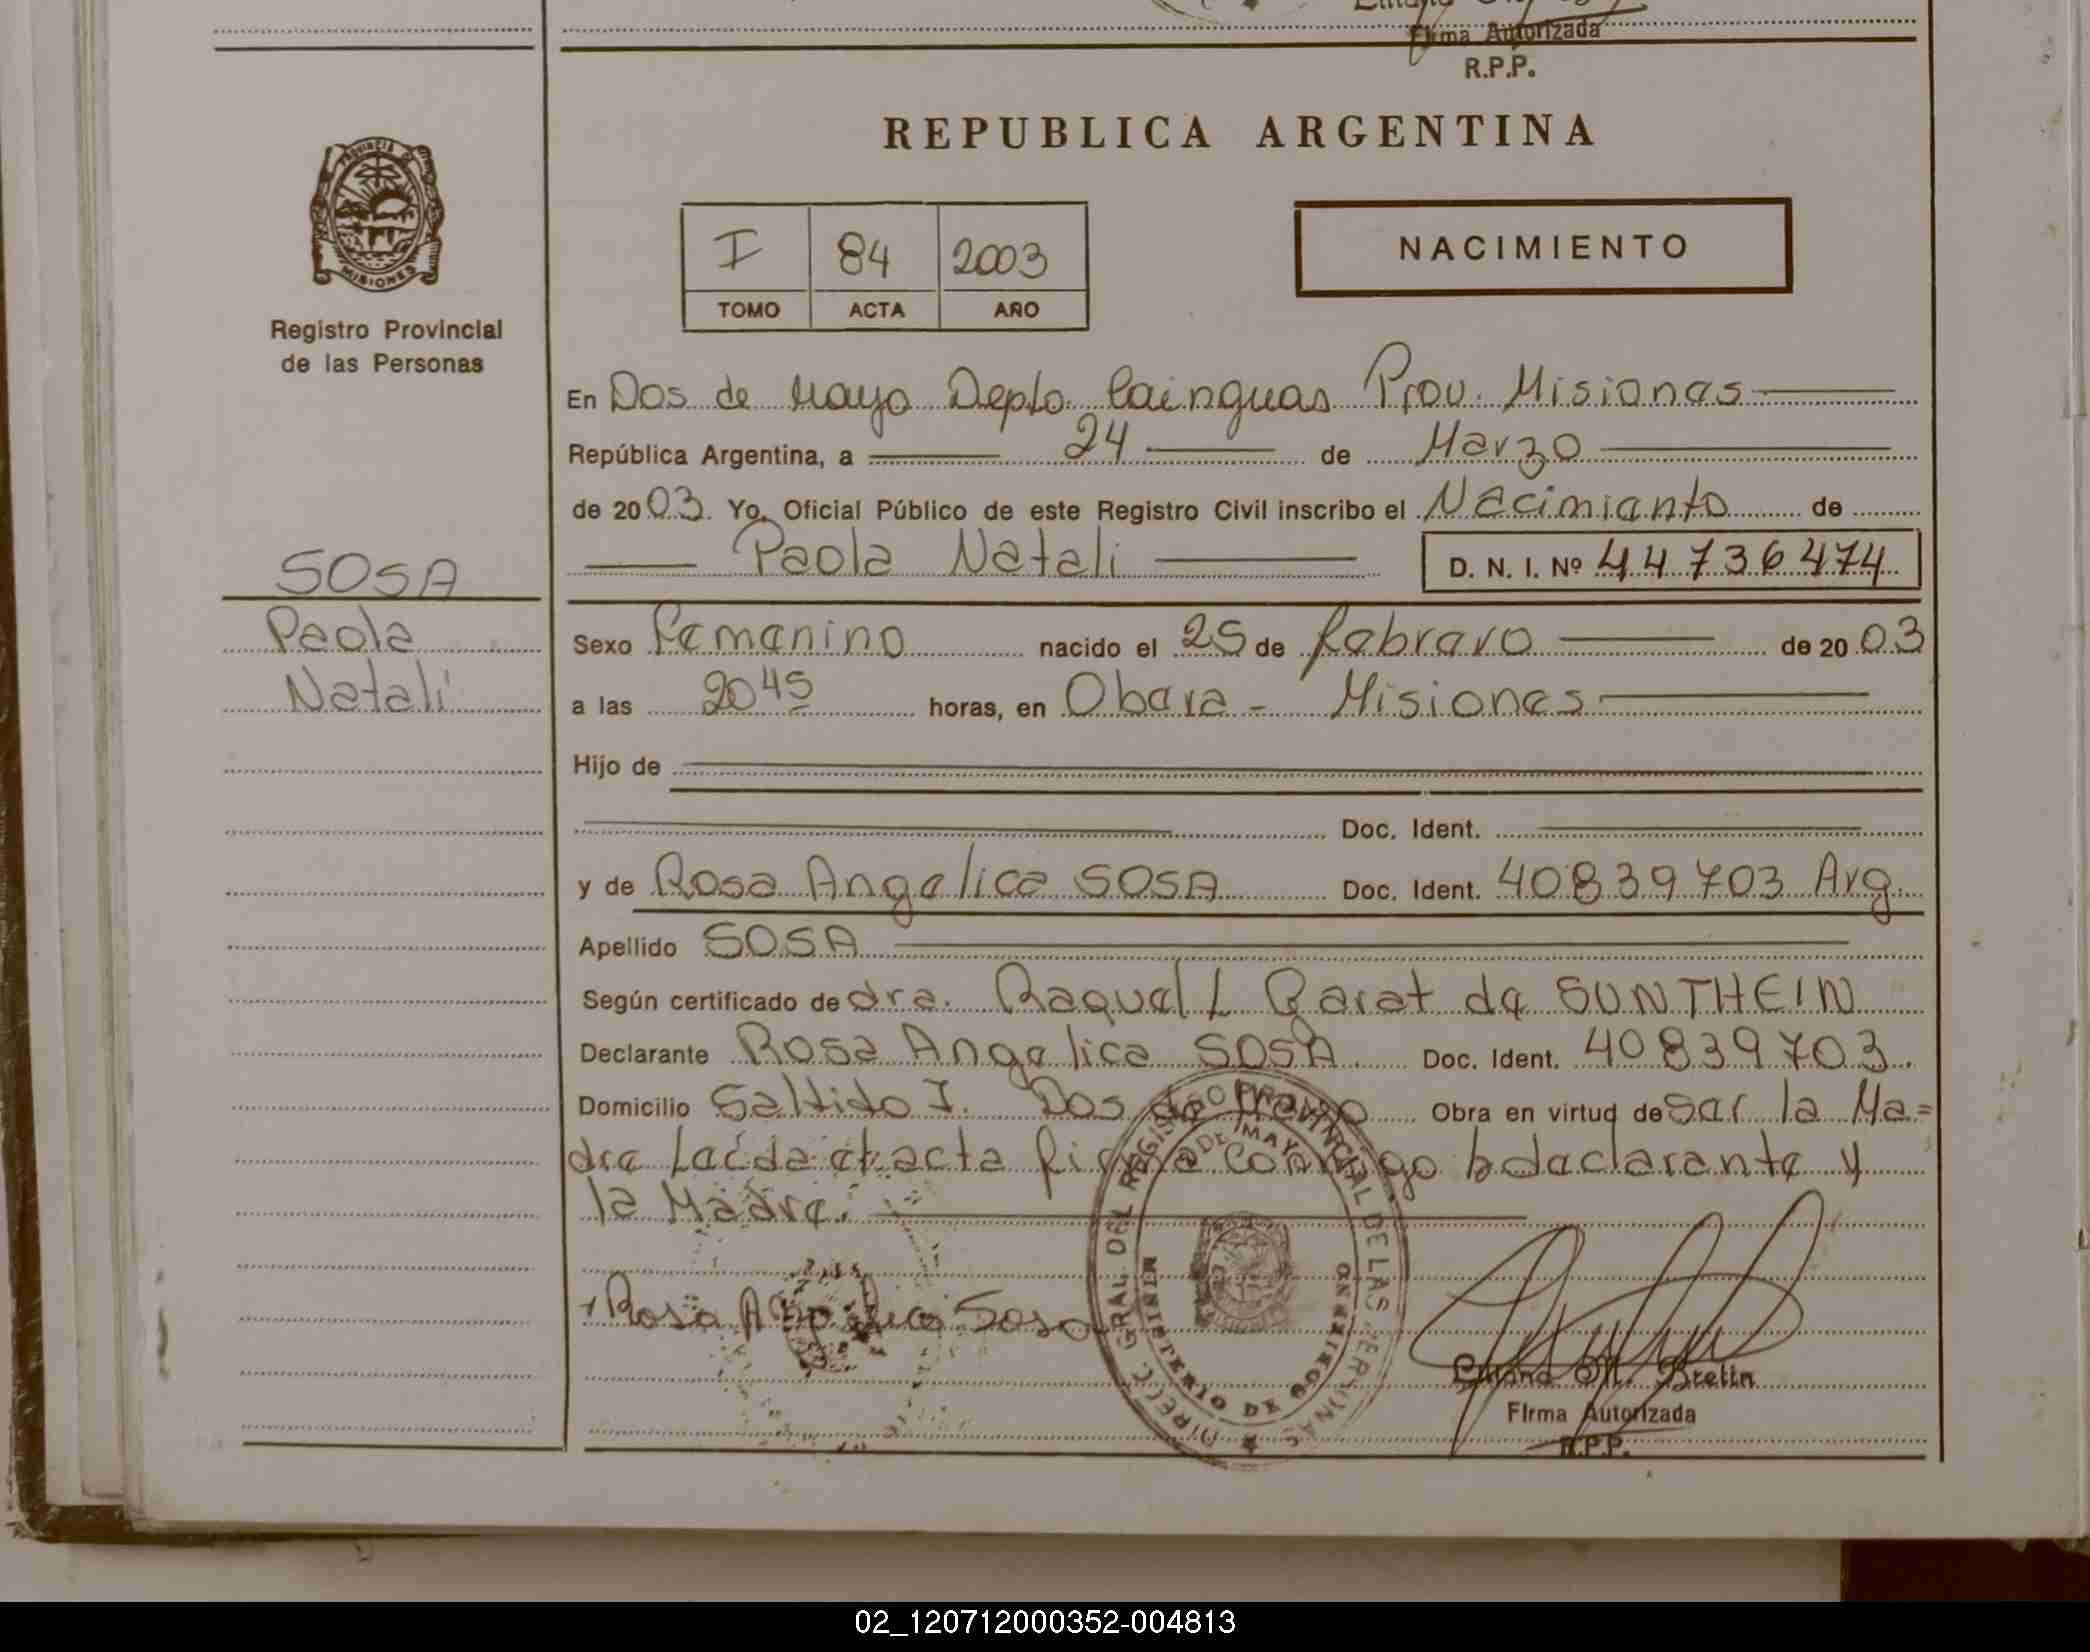 Firma Autorizada
R.P.P.
REPUBLICA ARGENTINA
PROVINCIA DE
MISIONES
Registro Provincial
de las Personas
I 84 2003
TOMO ACTA AÑO
NACIMIENTO
En Dos de Mayo Depto. Cainguas Prov. Misiones
República Argentina, a 24 de Marzo
de 2003. Yo, Oficial Público de este Registro Civil inscribo el Nacimiento de
Paola Natali D. N. I. Nº 44736474
SOSA
Paola
Natali
Sexo Femenino nacido el 25 de febrero de 2003
a las 20 45 horas, en Obera - Misiones
Hijo de
Doc. Ident.
y de Rosa Angelica SOSA Doc. Ident. 40839703 Arg.
Apellido SOSA
Según certificado de dra. Raquel L Barat de SUNTHEIN
Declarante Rosa Angelica SOSA. Doc. Ident. 40839703.
Domicilio Saltido I. Dos de Mayo Obra en virtud de Ser la Ma=
dre Leída el acta firma conmigo la declarante y
la Madre.
Rosa Angelica Sosa
DIRECC. GRAL. DEL REGISTRO PROVINCIAL DE LAS PERSONAS
2 DE MAYO
MINISTERIO DE GOBIERNO
Bretin
Firma Autorizada
R.P.P.
02_120712000352-004813